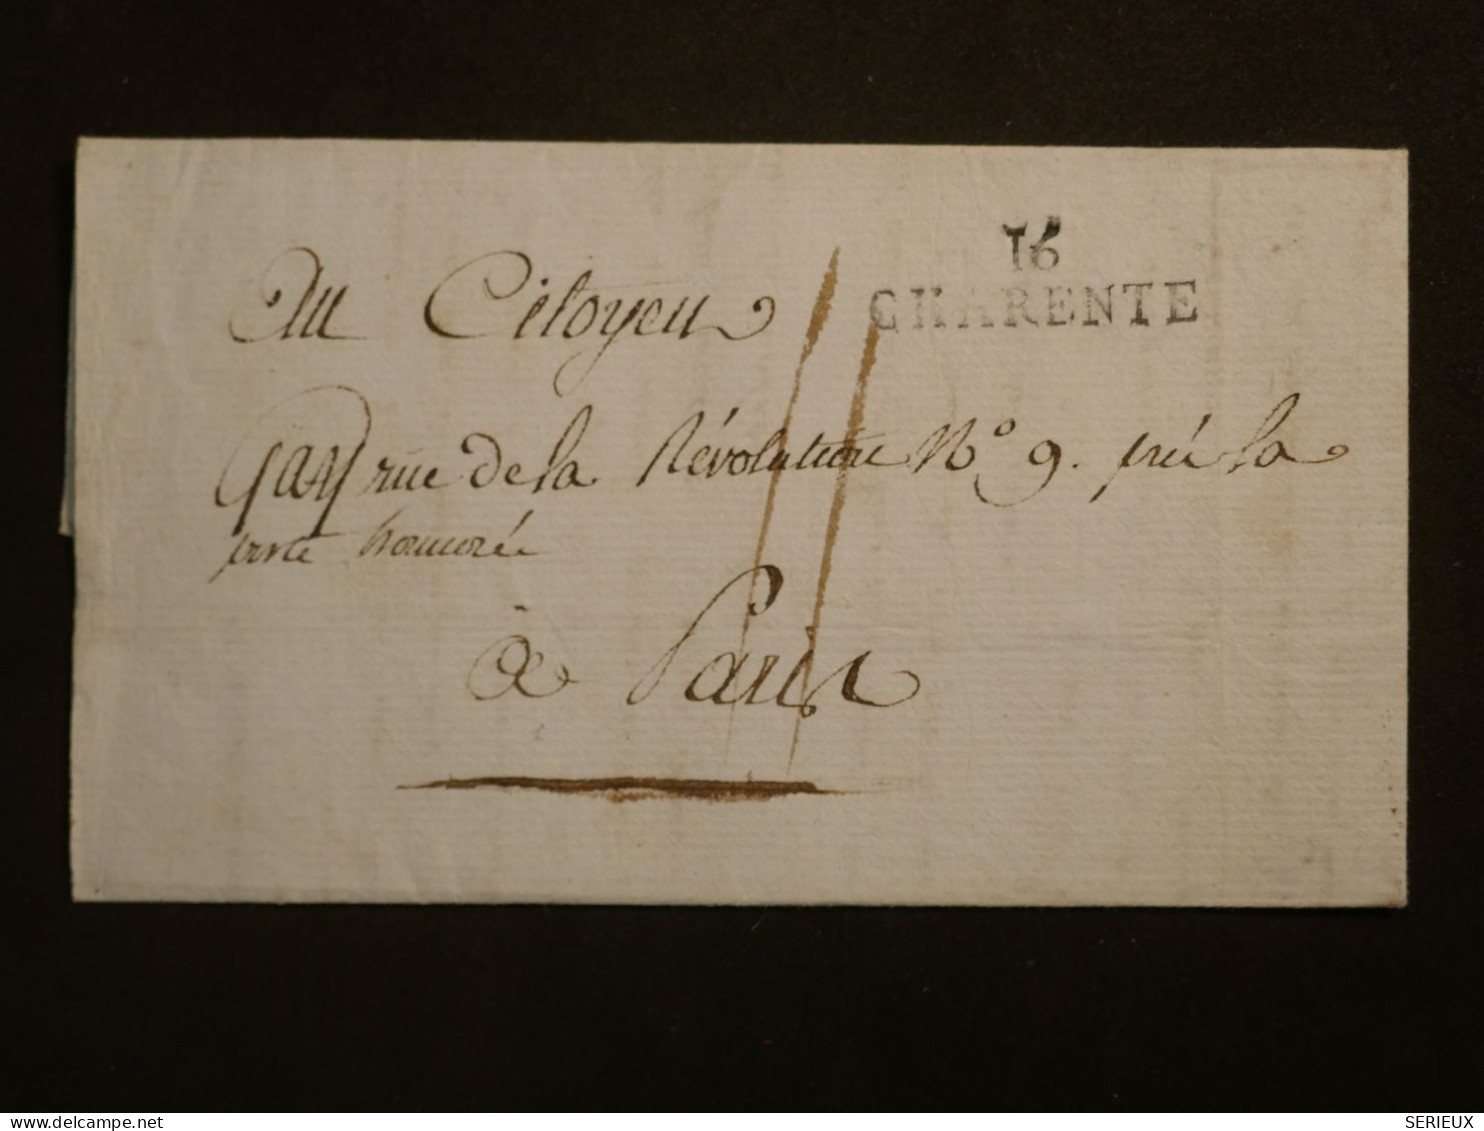 16
CHARENTE
Au Citoyen
Gay rue de la Révolution N° 9. près la
porte honnorée
à Paris
delcampe.net
SERIEUX